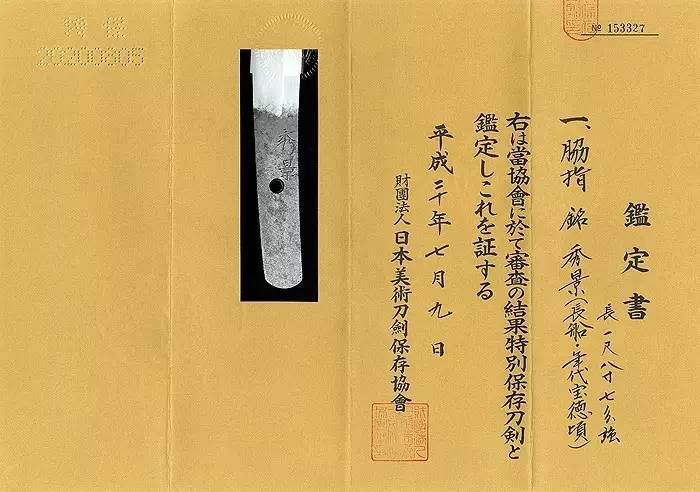 № 153327
鑑定書
長一尺八寸七分強
一、脇指 銘 秀景(長船・年代宝徳頃)
右は當協會に於て審査の結果特別保存刀剣と
鑑定しこれを証する
平成三十年七月九日
財團法人 日本美術刀劍保存協會
秀景
20200605